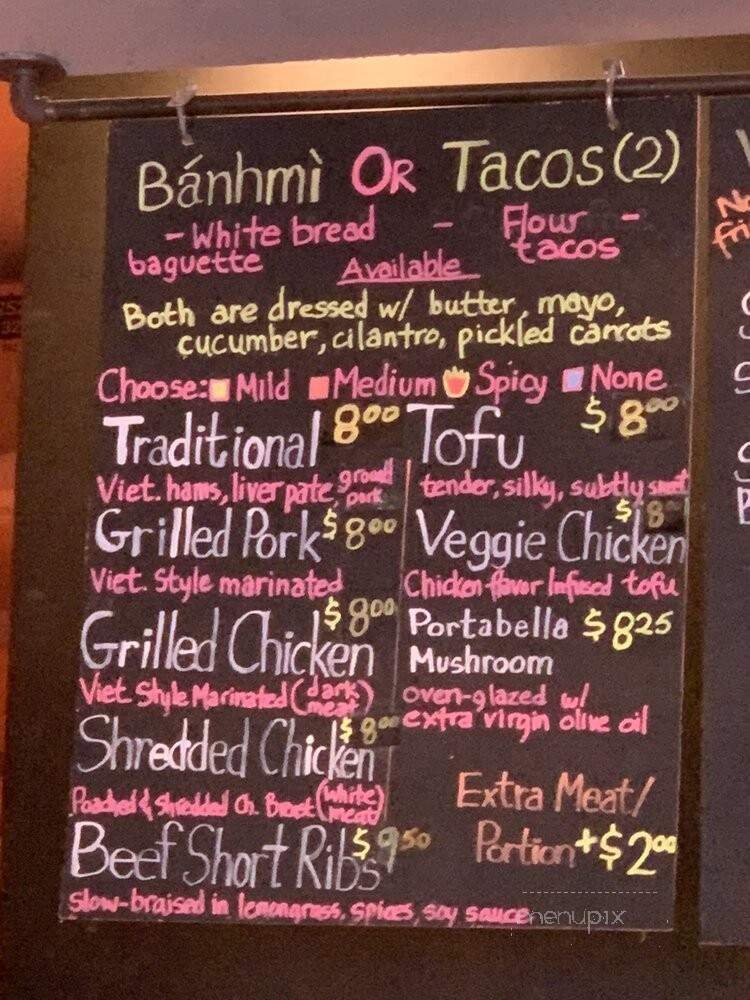 Bánhmì OR Tacos (2)
- White bread - Flour -
baguette tacos
Available
Both are dressed w/ butter, mayo,
cucumber, cilantro, pickled carrots
Choose: Mild Medium Spicy None
Traditional 8.00
Viet. hams, liver pate, ground
pork
Grilled Pork $8.00
Viet. Style marinated
Grilled Chicken $8.00
Viet. Style Marinated (dark
meat)
Shredded Chicken $8.00
Poached & Shredded Ch. Breast (white
meat)
Beef Short Ribs $9.50
slow-braised in lemongrass, spices, soy sauce
Tofu $8.00
tender, silky, subtly sweet
Veggie Chicken $8
Chicken flavor Infused tofu
Portabella $8.25
Mushroom
oven-glazed w/
extra virgin olive oil
Extra Meat/
Portion +$2.00
menupix